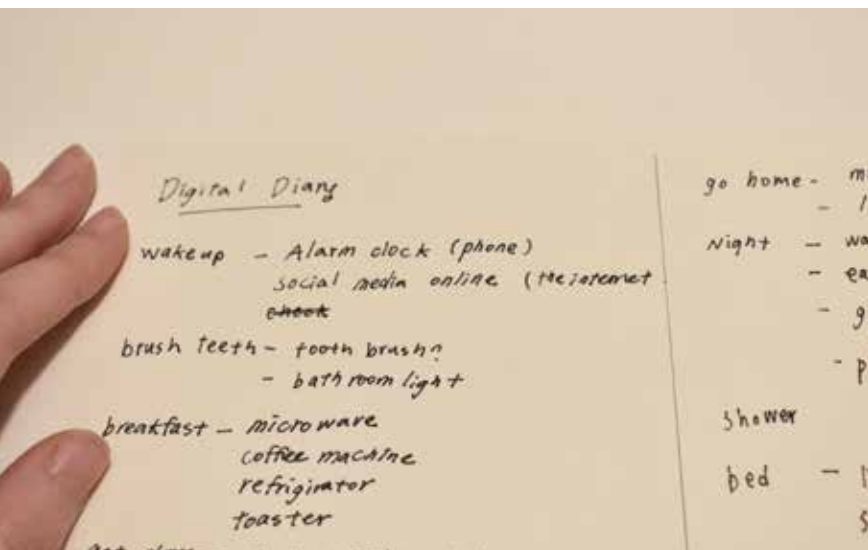 Digital Diary
wakeup - Alarm clock (phone)
social media online (the internet
check
brush teeth - tooth brush?
- bathroom light
breakfast - microware
coffee machine
refrigirator
toaster
go home -
Night -
shower
bed -